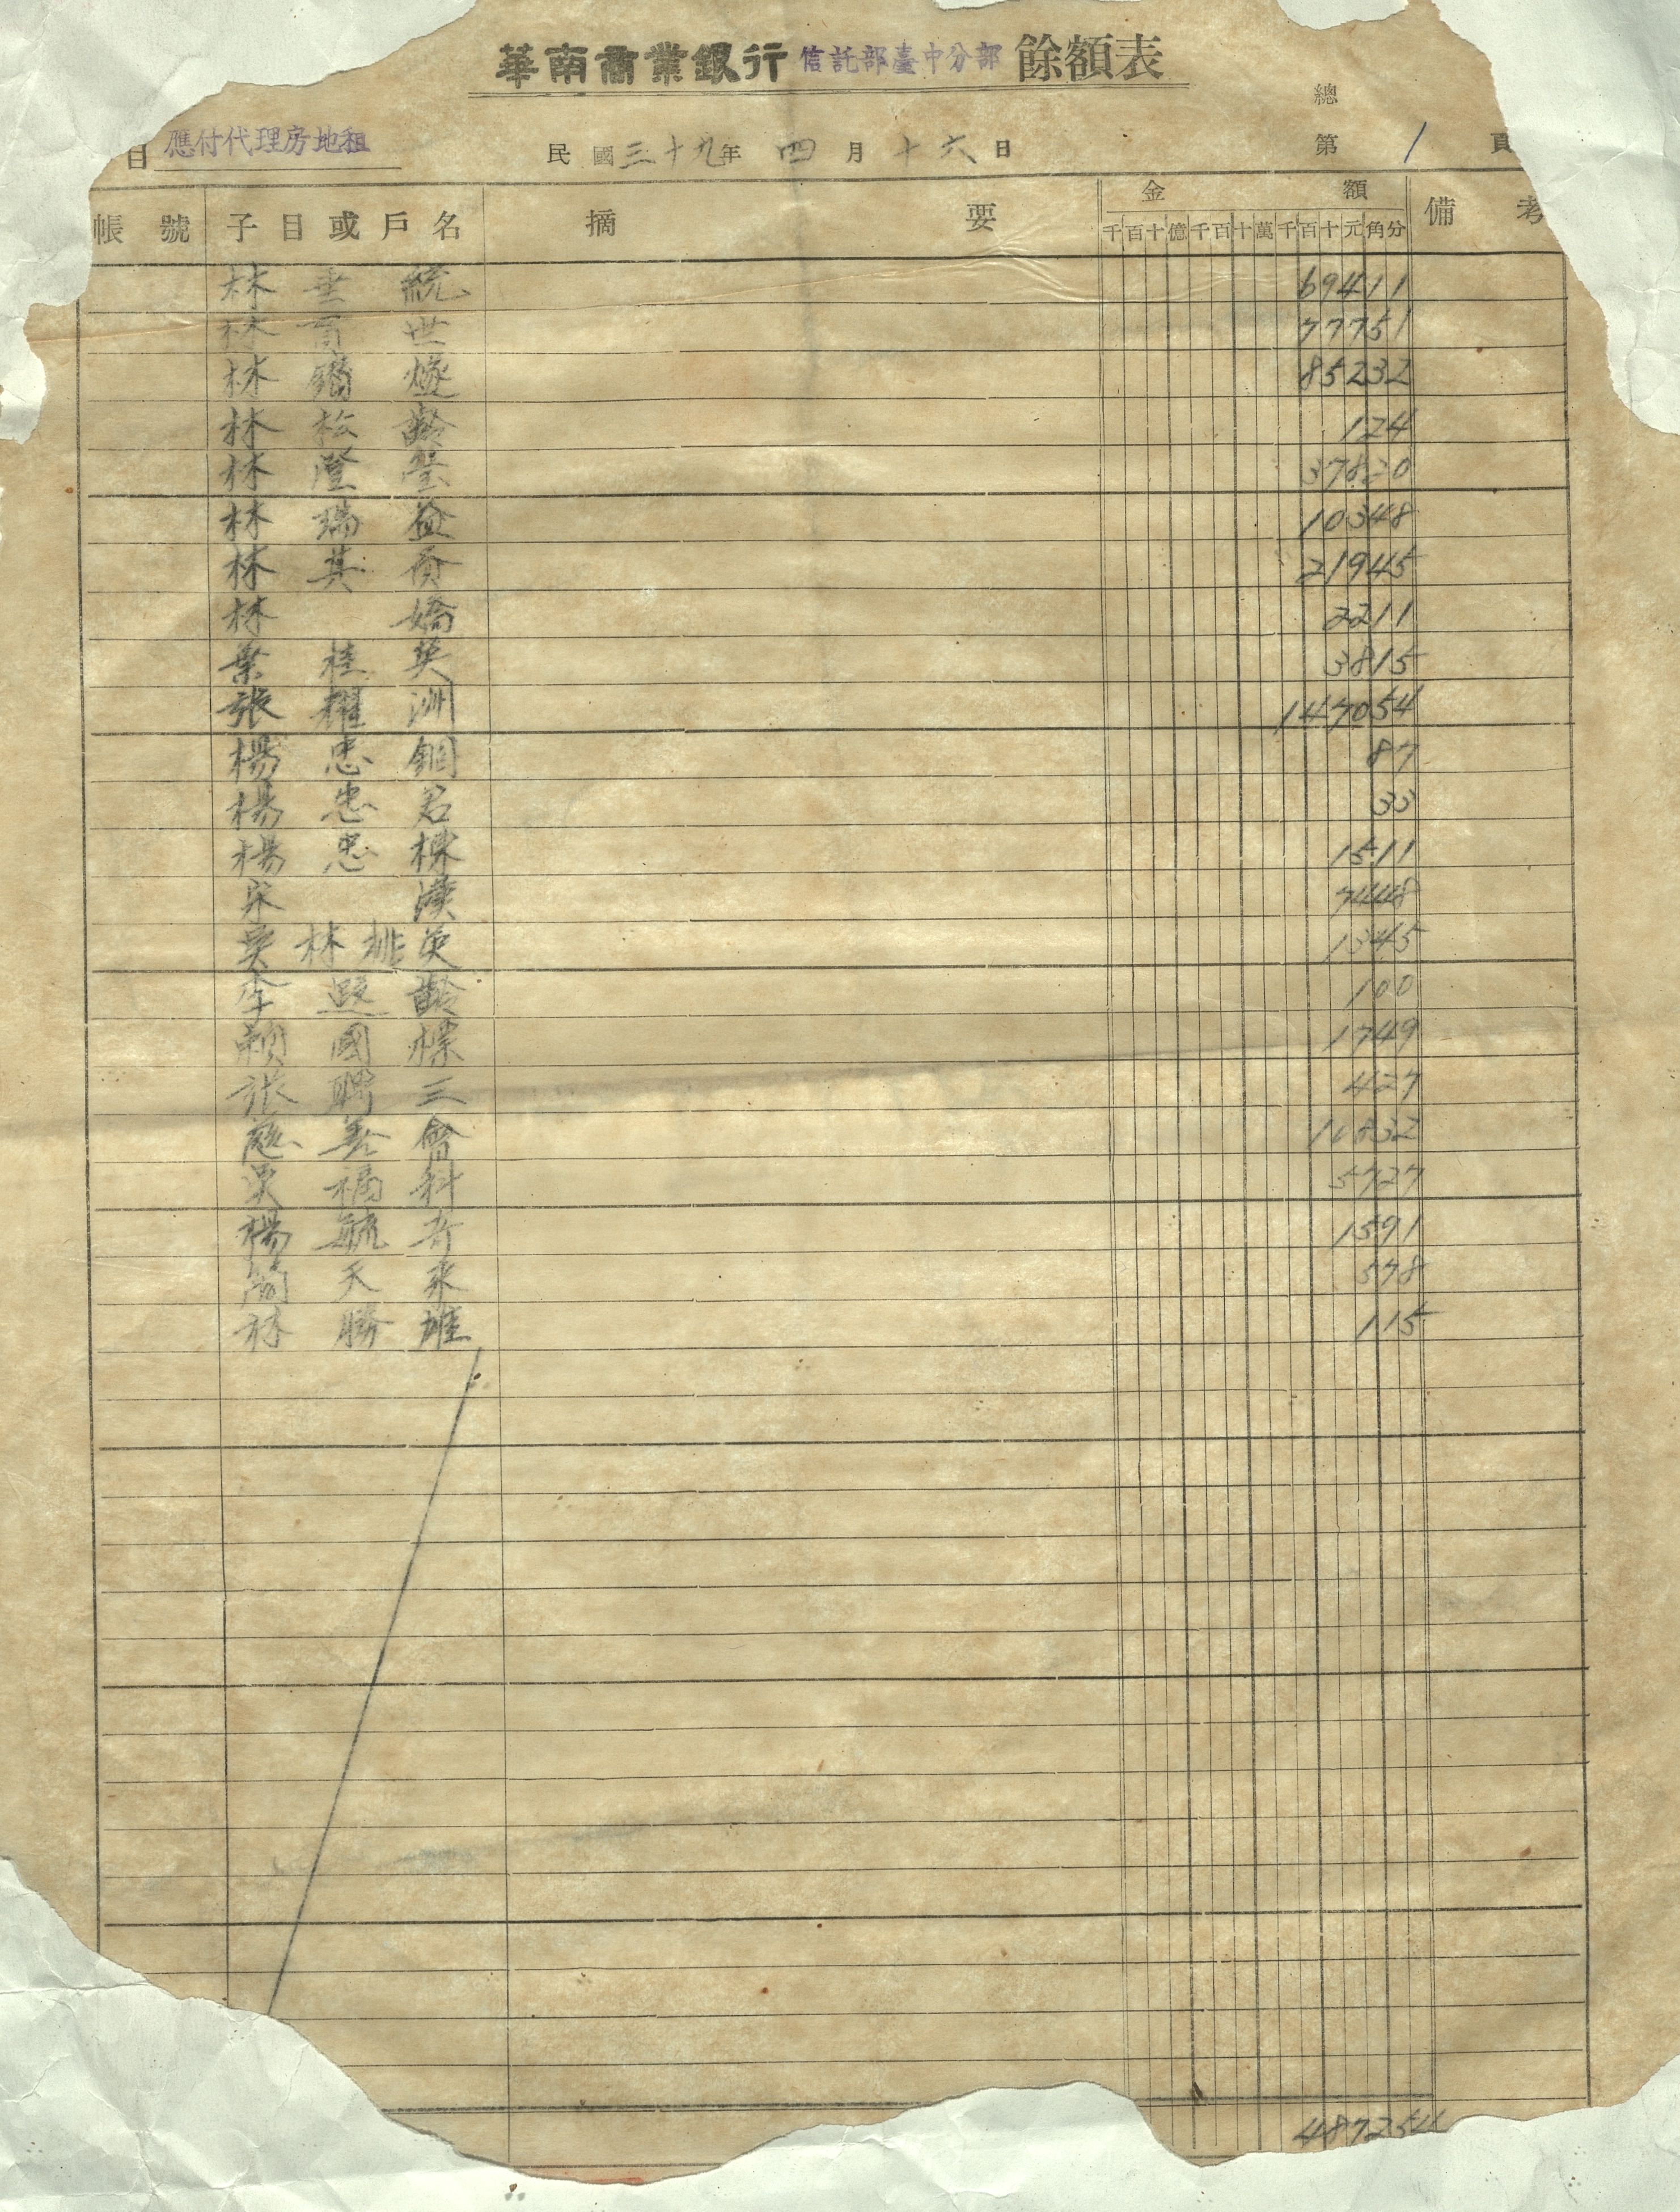 華南商業銀行 信託部臺中分部 餘額表
總
目 應付代理房地租 民國三十九年四月十六日 第 1 頁
帳號 子目或戶名 摘要 金額 備考
千百十億千百十萬千百十元角分
林垂統 69411
林育世 77751
林鏞燧 85232
林松齡 124
林澄瑩 37820
林瑞益 10348
林其賢 21945
林嬌 2211
葉桂英 3815
張耀洲 147054
楊忠錮 87
楊忠君 33
楊忠樑 1511
宋漢 7448
吳林桃英 1345
李照齡 100
賴國樑 1749
張聘三 427
慈善會 5727
栗福科
楊毓奇 1591
簡天來 578
林勝雄 115
487254